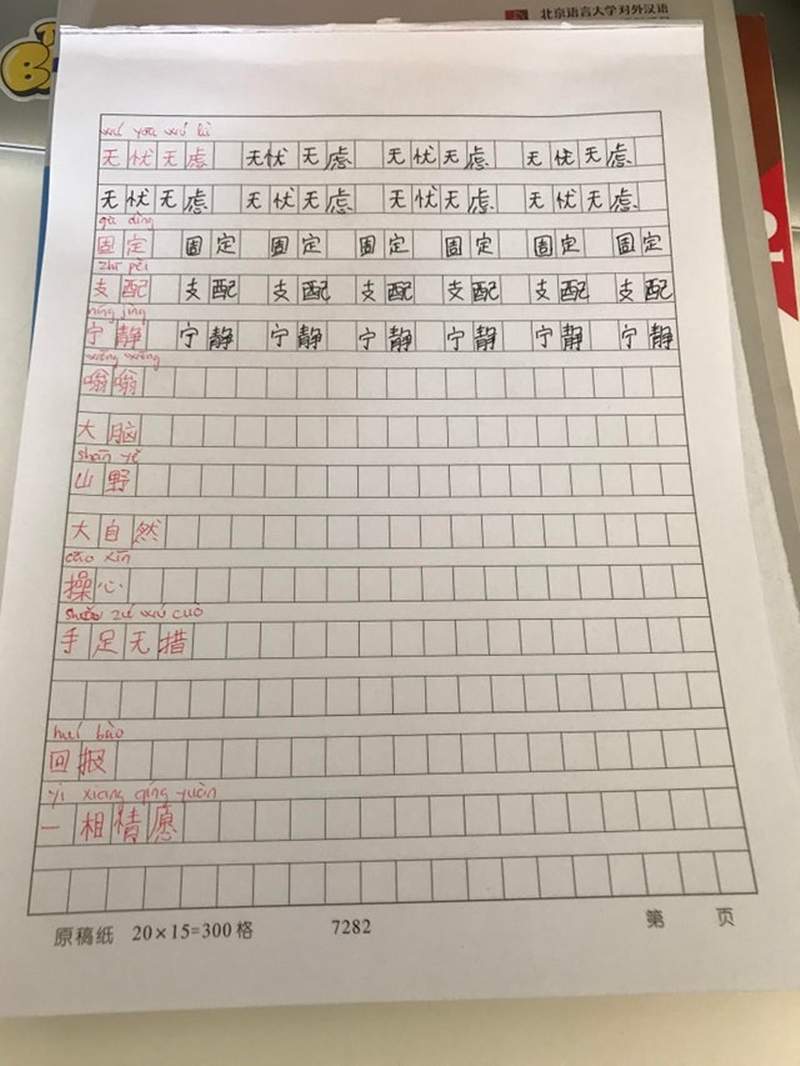 北京语言大学对外汉语
wú yōu wú lǜ
无忧无虑 无忧无虑 无忧无虑 无忧无虑
无忧无虑 无忧无虑 无忧无虑 无忧无虑
gù dìng
固定 固定 固定 固定 固定 固定 固定
zhī pèi
支配 支配 支配 支配 支配 支配 支配
níng jìng
宁静 宁静 宁静 宁静 宁静 宁静 宁静
嗡嗡
大脑
shān yě
山野
大自然
cāo xīn
操心
zú wú cuò
手足无措
huí bào
回报
yì xiāng qíng yuàn
一相情愿
原稿纸 20×15=300格 7282 第 页